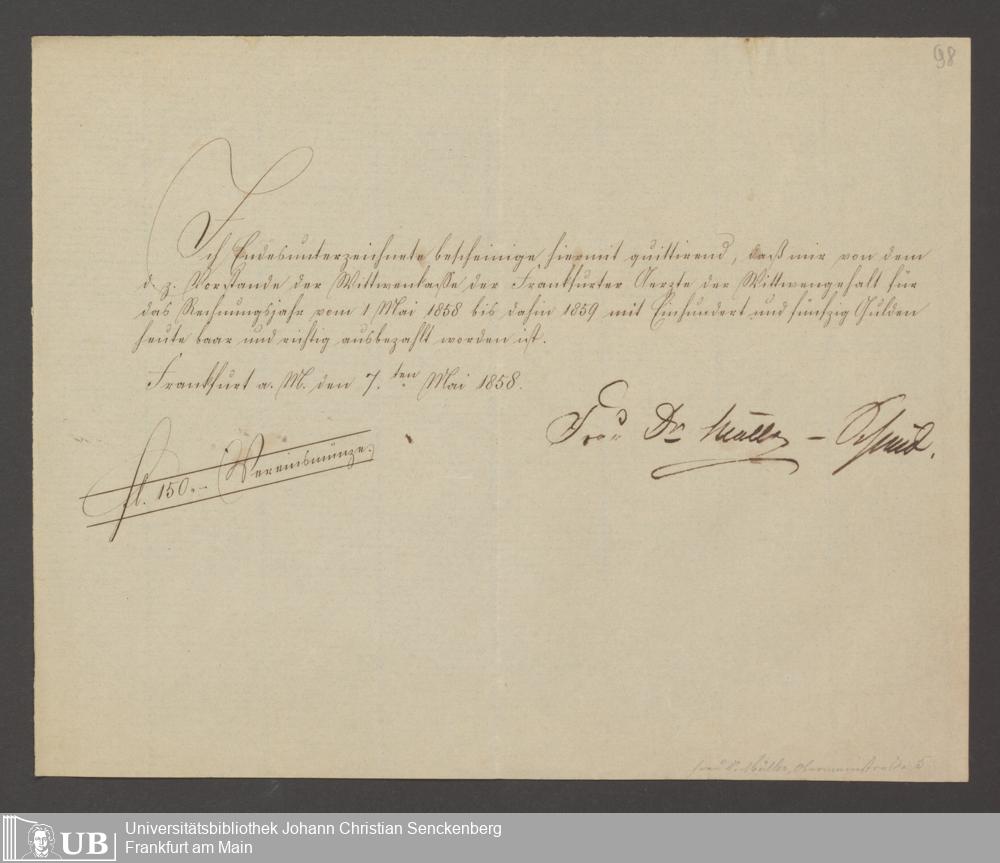 98
Ich Endesunterzeichnete bescheinige hiermit quittirend, daß mir von dem
d. z. Vorstande der Wittwenkasse der Frankfurter Aerzte der Wittwengehalt für
das Rechnungsjahr vom 1 Mai 1858 bis dahin 1859 mit Einhundert und fünfzig Gulden
heute baar und richtig ausbezahlt worden ist.
Frankfurt a. M. den 7.ten Mai 1858.
Frau Dr Müller – Schmid.
fl. 150.– Vereinsmünze.
Frau Dr. Müller, Obermainstraße 5
UB
Universitätsbibliothek Johann Christian Senckenberg
Frankfurt am Main